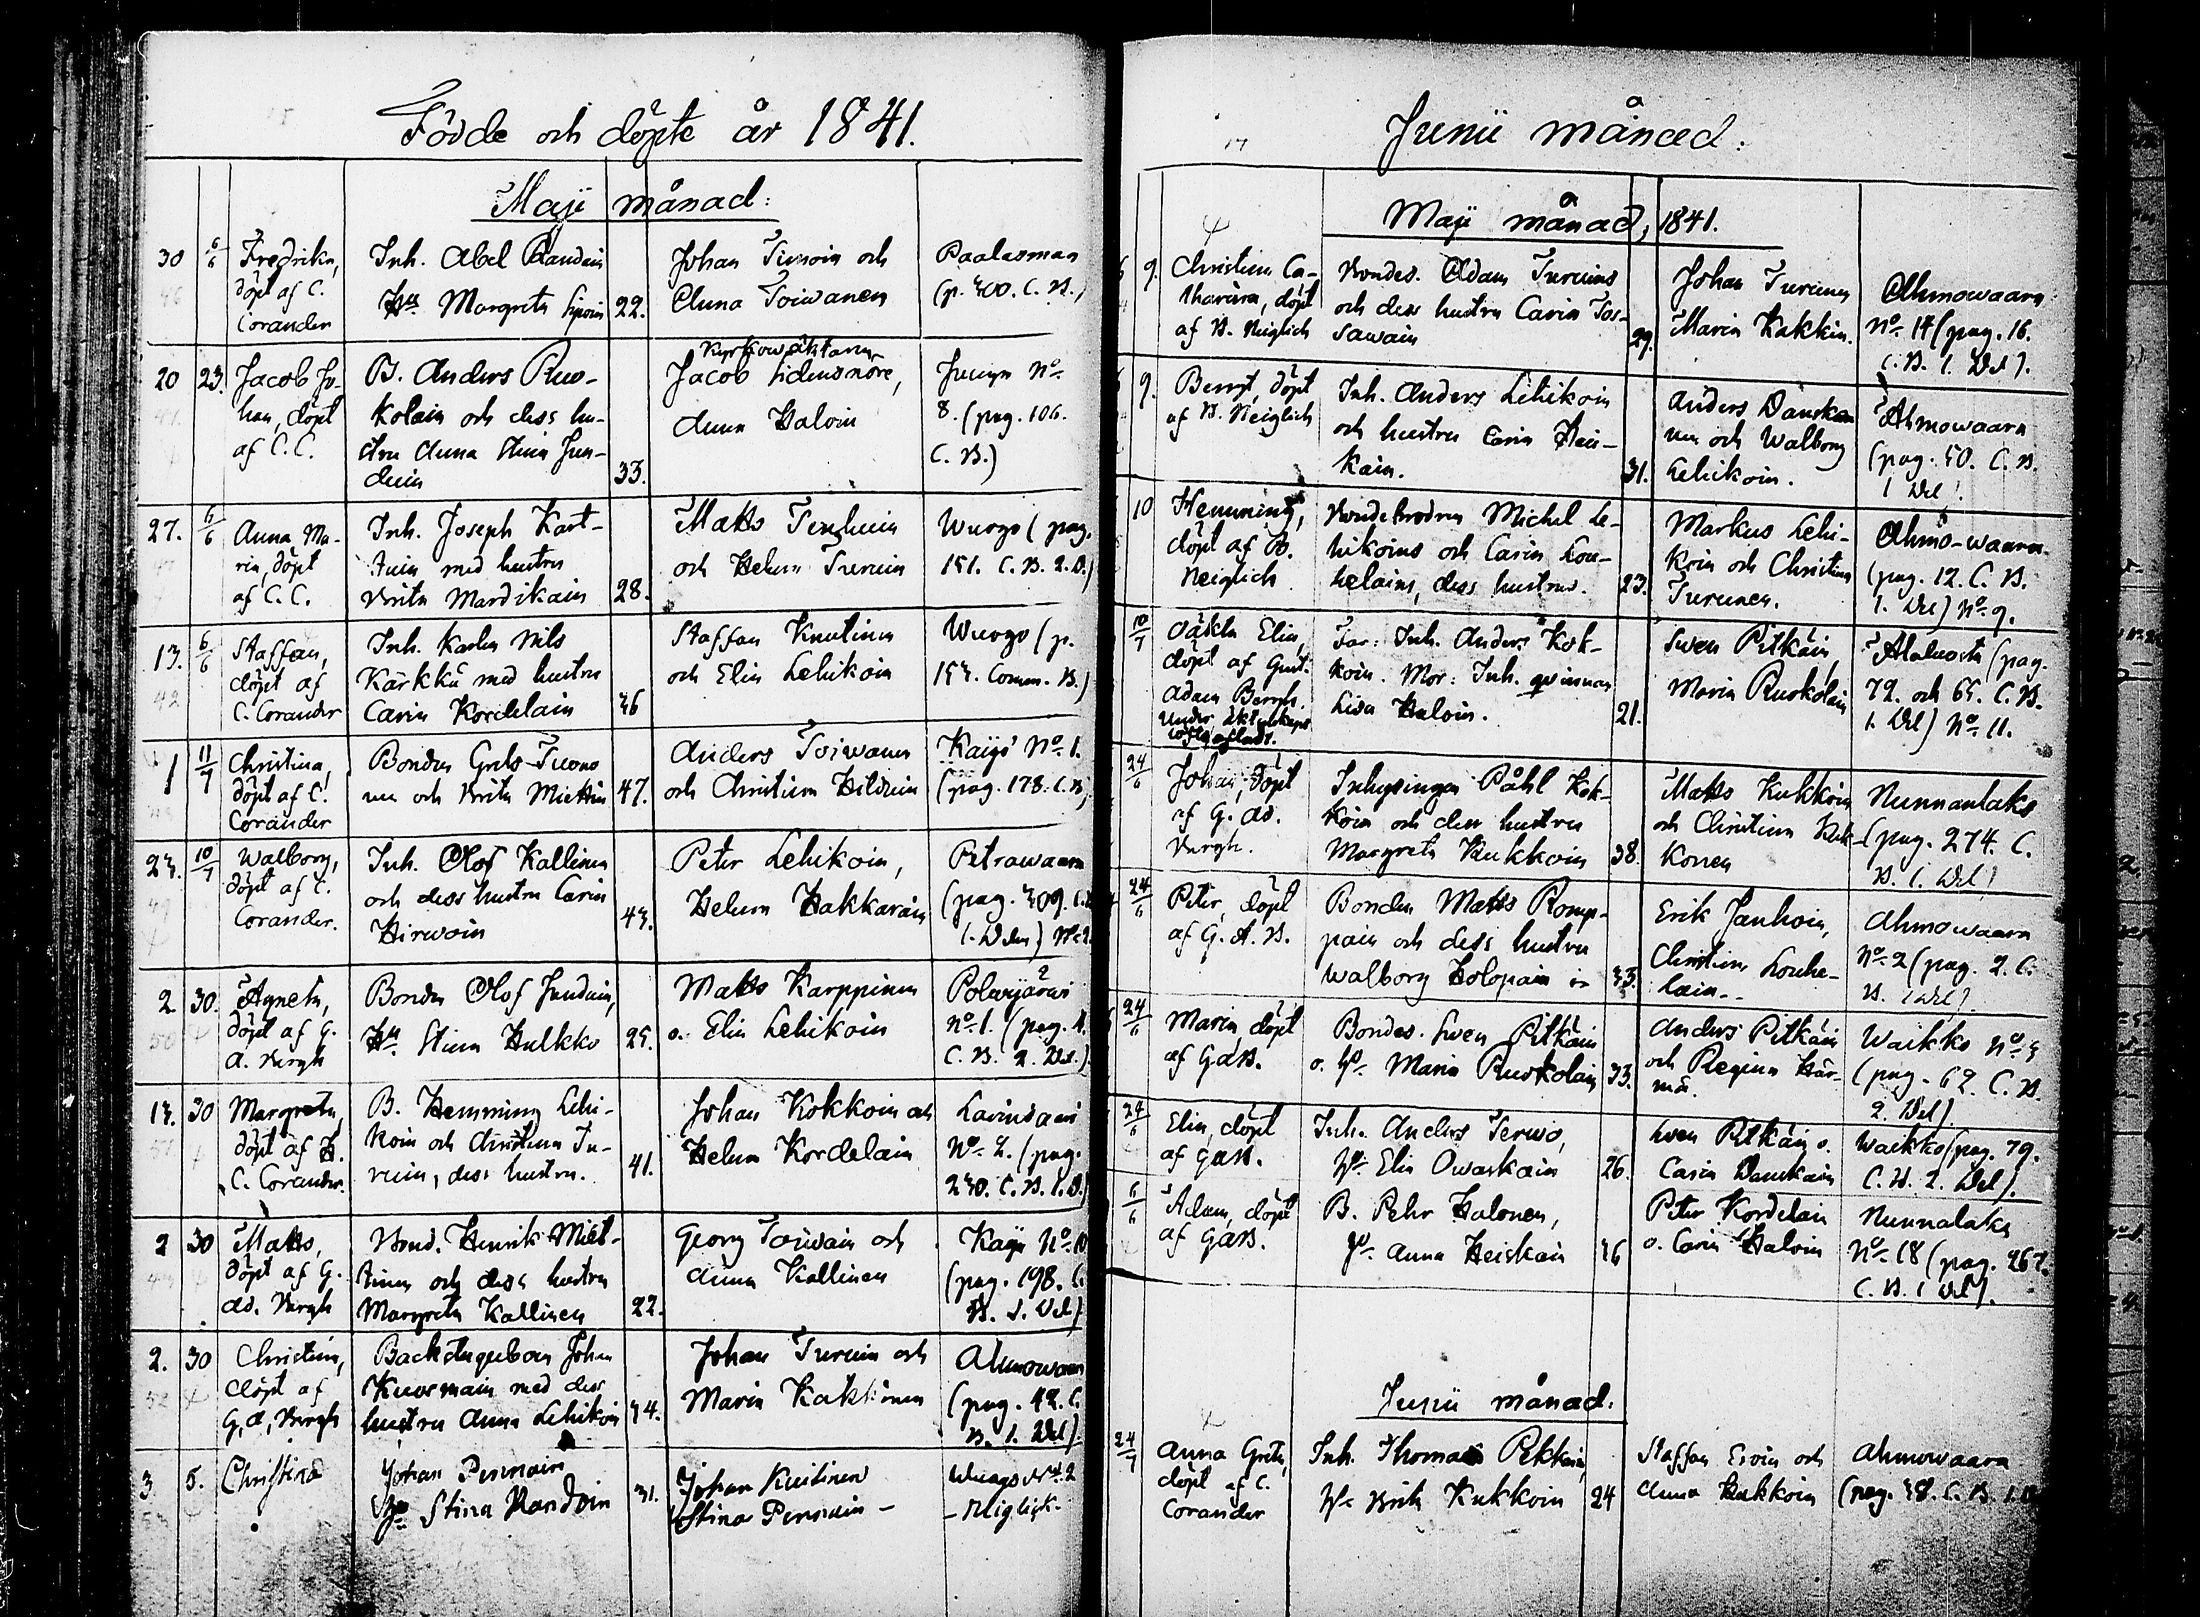 Födde och döpte år 1841.
Maji månad:
30 6/6 Fredrika, döpt af C. Corander
Inh. Abel Randuin
Hu Margreta Sipoin 22.
Johan Timoin och
Anna Toiwanen
Paalasmaa
(p. 300. C. B.)
20 23. Jacob Jo-
han, döpt
af C. C.
B. Anders Ruo-
kolain och dess hu-
stru Anna Stina Jun-
duin 33.
Kyrkowäktaren
Jacob Sidensnöre,
Anna Haloin
Juuga No.
8. (pag. 106.
C. B.)
27. 6/6 Anna Ma-
ria, döpt
af C. C.
Inh. Joseph Kart-
tuin med hustru
Brita Mardikain 28.
Matts Tenhuin
och Helena Turuin
Wuogo (pag.
151. C. B. 2. D.)
13. 6/6 Staffan,
döpt af
C. Corander
Inh. Karlen Nils
Kärkkä med hustru
Carin Kordelain 36
Staffan Knutinen
och Elin Lehikoin
Wuogo (p.
153. Comm. B.)
1 11/7 Christina,
döpt af C.
Corander
Bonden Grels Tuono
nen och Brita Miettin 47.
Anders Toiwanen
och Christina Hilduin
Kaijo No. 1.
(pag. 178. C. B.
23. 10/7 Walborg,
döpt af C.
Corander.
Inh. Olof Kallinen
och dess hustru Carin
Hirwoin 43.
Peter Lehikoin,
Helena Hakkarain
Petrawaara
(pag. 309. C. B.
1. Delen) No. 2.
2 30. Agneta,
döpt af G.
A. Bergh
Bonden Olof Junduin,
Hu Stina Hulkko 25.
Matts Karppinen
o. Elin Lehikoin
Polwijärwi
No. 1. (pag. 4.
C. B. 2. Del.)
13. 30 Margreta,
döpt af
C. Corander.
B. Hemming Lehi-
koin och Christina Tu-
ruin, dess hustru. 41.
Johan Kokkoin och
Helena Kordelain
No. 2. (pag.
230. C. B. 1. D.)
2 30 Matts,
döpt af G.
Ad. Bergh
Bond. Henrik Miet-
tinen och dess hustru
Margreta Kallinen 22.
Georg Toiwain och
Anna Kallinen
Kaijo No. 10
(pag. 198. C.
B. 1. Del.)
2. 30 Christina,
döpt af
G. A. Bergh
Johan
Kuosmain med dess
hustru Anna Lehikoin 34.
Johan Turuin och
Maria Kakkinen
Ahmowaara
(pag. 42. C.
B. 1. Del).
3 5. Christina
Johan Pennain
Hu Stina Randoin 31.
Johan Kuitinen
Stina Pennain -
Wuogo No. 2
- Neiglick.
Junii månad:
Maji månad, 1841.
9. Christina Ca-
tharina, döpt
af B. Neiglick
Bondes. Adam Turuins
och dess hustru Carin Tos-
sawain 29.
Johan Turunen
Maria Kakkin.
Ahmowaara
No. 14 (pag. 16.
C. B. 1. Del).
9. Bengt, döpt
af B. Neiglick
Inh. Anders Lehikoin
och hustru Carin Hei-
kain. 31.
Anders Danska
nen och Walborg
Lehikoin.
Ahmowaara
(pag. 50. C. B.
1 Del).
10 Hemming,
döpt af B.
Neiglick
Bondebrodren Michel Le-
hikoins och Carin Lou-
helains, dess hustrus. 23.
Markus Lehi-
koin och Christina
Turunen.
Ahmo-waara
(pag. 12. C. B.
1. Del) No. 9.
10/7 Oäkta Elin,
döpt af Gust.
Adam Bergh.
under äktenskaps
löfte aflad.
Far: Inh. Anders Kok-
koin. Mor: Inh. qwinnan
Lisa Haloin. 21.
Swen Pitkäin,
Maria Ruokolain
(pag.
79. och 65. C. B.
1. Del) No. 11.
24/6 Johan, döpt
af G. Ad.
Bergh.
Inhysingen Påhl Kok-
koin och dess hustru
Margreta Kukkoin 38.
Matts Kukkoin
och Christina Kuk-
konen
Nunnanlaks
(pag. 274. C.
B. 1. Del)
24/6 Peter, döpt
af G. A. B.
Bonden Matts Romp-
pain och dess hustru
Walborg Holopain 33.
Erik Janhoin,
Christina Louhe-
lain..
Ahmowaara
No. 2 (pag. 2. C.
B. 1 Del)
24/6 Maria, döpt
af G. A. B.
Bondes. Swen Pitkäin
o. Hu. Maria Ruokolain 33.
Anders Pitkäin
och Regina Här-
mä.
Waikko No. 3
(pag. 69. C. B.
2. Del).
24/6 Elin, döpt
af G. A. B.
Inh. Anders Terwo,
Hu. Elin Owaskain 26.
Swen Pitkäin o.
Carin Danskain
Waikko (pag. 79.
C. B. 2. Del).
6/6 Adam, döpt
af G. A. B.
B. Pehr Halonen,
Hu. Anna Heiskain 36
Peter Kordelain
o. Carin Haloin
Nunnalaks
No. 18 (pag. 267.
C. B. 1 Del).
Junii månad.
24/7 Anna Greta,
döpt af C.
Corander
Inh. Thomas Pekkain,
Hu Brita Kukkoin 24
Staffan Eroin och
Anna Kukkoin
Ahmowaara
(pag. 38. C. B. 1. D.